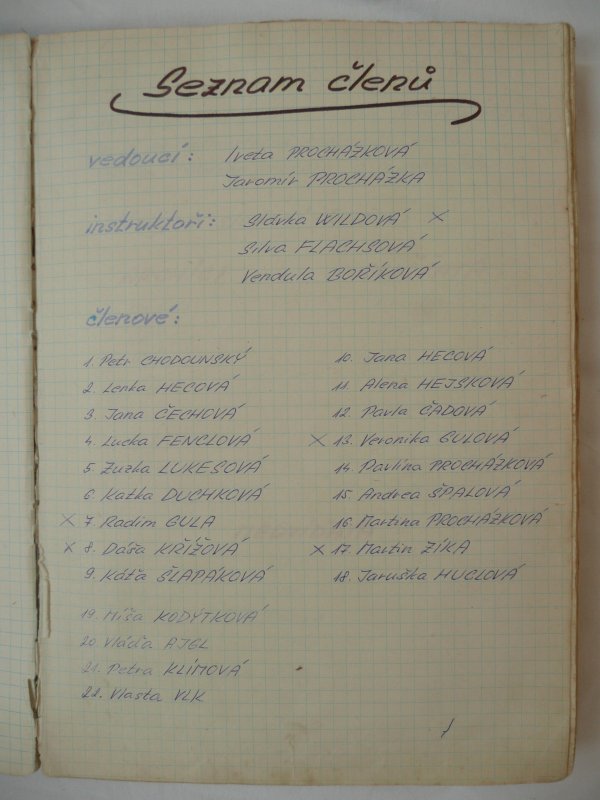 Seznam členů
vedoucí: Iveta PROCHÁZKOVÁ
Jaromír PROCHÁZKA
instruktoři: Slávka WILDOVÁ ×
Silva FLACHSOVÁ
Vendula BOŘÍKOVÁ
členové:
1. Petr CHODOUNSKÝ
2. Lenka HECOVÁ
3. Jana ČECHOVÁ
4. Lucka FENCLOVÁ
5. Zuzka LUKESOVÁ
6. Katka DUCHKOVÁ
× 7. Radim GULA
× 8. Dáša KŘÍŽOVÁ
9. Káťa ŠLAPÁKOVÁ
10. Jana HECOVÁ
11. Alena HEJSKOVÁ
12. Pavla ČADOVÁ
× 13. Veronika GULOVÁ
14. Pavlína PROCHÁZKOVÁ
15 Andrea ŠPALOVÁ
16 Martina PROCHÁZKOVÁ
× 17. Martin ZÍKA
18. Jaruška HUCLOVÁ
19. Míša KODÝTKOVÁ
20. Vláďa AJGL
21. Petra KLÍMOVÁ
22. Vlasta VLK
1